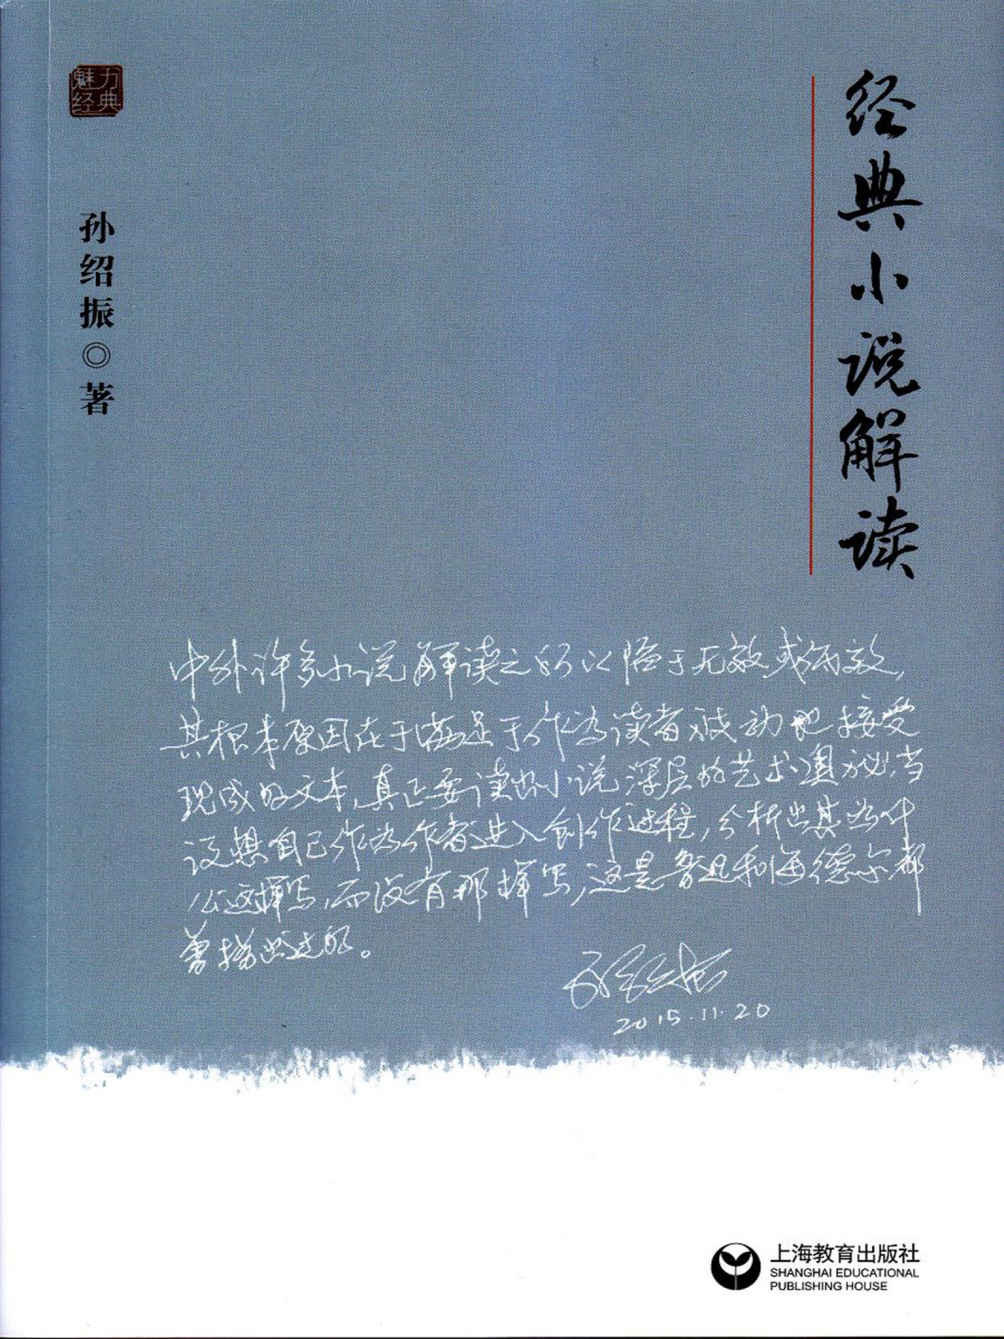 魅力
经典
孙绍振◎著
经典小说解读
中外许多小说解读之所以陷于无效或低效，
其根本原因在于满足于作为读者被动地接受
现成的文本，真正要读出小说深层的艺术奥秘，当
设想自己作为作者进入创作过程，分析出其为什
么这样写，而没有那样写，这是鲁迅和海德尔都
曾指出过的。
孙绍振
2015.11.20
上海教育出版社
SHANGHAI EDUCATIONAL
PUBLISHING HOUSE